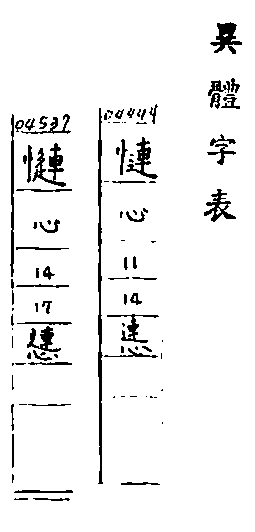 異體字表
04444
慩
心
11
14
04537
心
14
17